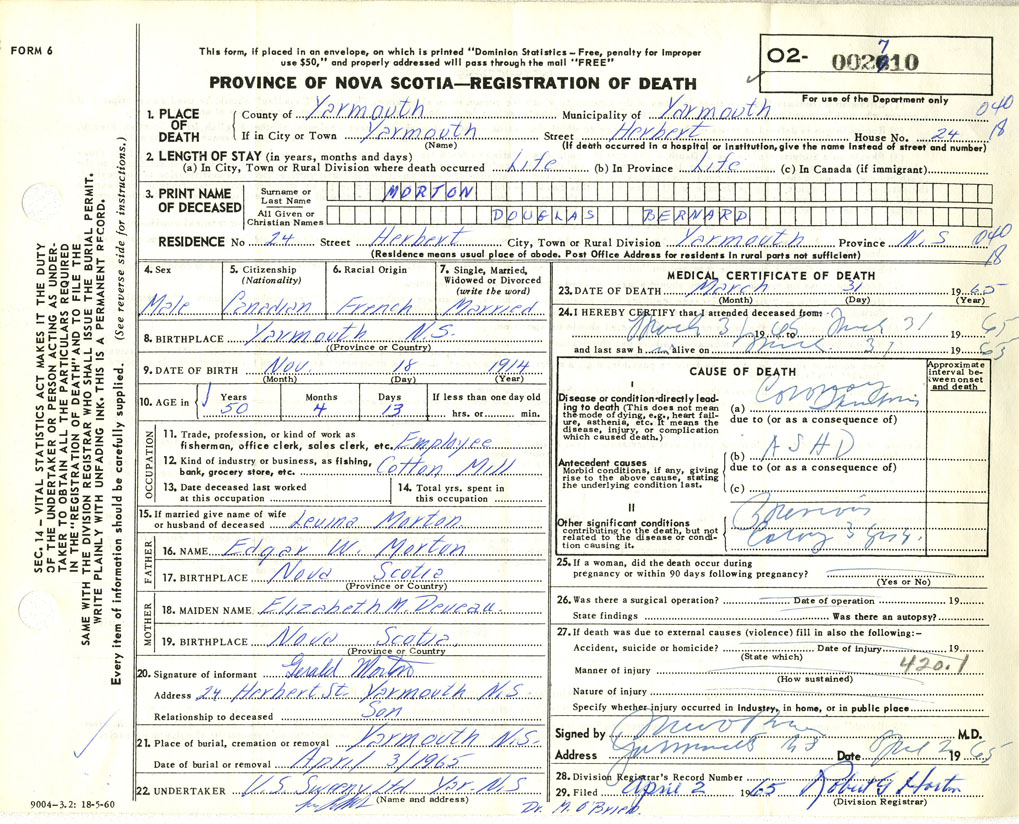 FORM 6
This form, if placed in an envelope, on which is printed "Dominion Statistics – Free, penalty for improper
use $50," and properly addressed will pass through the mail "FREE"
02- 002710
For use of the Department only
PROVINCE OF NOVA SCOTIA—REGISTRATION OF DEATH
1. PLACE OF DEATH
County of Yarmouth Municipality of Yarmouth 040
If in City or Town Yarmouth Street Herbert House No. 24 18
(Name) (If death occurred in a hospital or institution, give the name instead of street and number)
2. LENGTH OF STAY (in years, months and days)
(a) In City, Town or Rural Division where death occurred Life (b) In Province Life (c) In Canada (if immigrant)
3. PRINT NAME OF DECEASED
Surname or Last Name MORTON
All Given or Christian Names DOUGLAS BERNARD
RESIDENCE No 24 Street Herbert City, Town or Rural Division Yarmouth Province N.S 040
(Residence means usual place of abode. Post Office Address for residents in rural parts not sufficient) 18
4. Sex
Male
5. Citizenship
(Nationality)
Canadian
6. Racial Origin
French
7. Single, Married,
Widowed or Divorced
(write the word)
Married
8. BIRTHPLACE Yarmouth N.S.
(Province or Country)
9. DATE OF BIRTH Nov. 18 1914
(Month) (Day) (Year)
10. AGE in Years Months Days If less than one day old
50 4 13 hrs. or min.
OCCUPATION
11. Trade, profession, or kind of work as
fisherman, office clerk, sales clerk, etc. Employee
12. Kind of industry or business, as fishing,
bank, grocery store, etc. Cotton Mill
13. Date deceased last worked
at this occupation
14. Total yrs. spent in
this occupation
15. If married give name of wife
or husband of deceased Levina Morton
FATHER
16. NAME Edgar W. Morton
17. BIRTHPLACE Nova Scotia
(Province or Country)
MOTHER
18. MAIDEN NAME Elizabeth M. Deveau
19. BIRTHPLACE Nova Scotia
(Province or Country)
20. Signature of informant Gerald Morton
Address 24 Herbert St. Yarmouth N.S.
Relationship to deceased Son
21. Place of burial, cremation or removal Yarmouth N.S.
Date of burial or removal April 3/1965
22. UNDERTAKER Sweeny Ltd Yar. N.S
(Name and address)
MEDICAL CERTIFICATE OF DEATH
23. DATE OF DEATH March 31 1965
(Month) (Day) (Year)
24. I HEREBY CERTIFY that I attended deceased from:
March 31 1965 to March 31 1965
and last saw him alive on March 31 1965
CAUSE OF DEATH
Approximate
interval be-
tween onset
and death
I
Disease or condition directly lead-
ing to death (This does not mean
the mode of dying, e.g., heart fail-
ure, asthenia, etc. It means the
disease, injury, or complication
which caused death.)
(a) Coronary
due to (or as a consequence of)
Antecedent causes
Morbid conditions, if any, giving
rise to the above cause, stating
the underlying condition last.
(b) ASHD
due to (or as a consequence of)
(c)
II
Other significant conditions
contributing to the death, but not
related to the disease or condi-
tion causing it.
Previous
3 yrs.
25. If a woman, did the death occur during
pregnancy or within 90 days following pregnancy?
(Yes or No)
26. Was there a surgical operation? Date of operation 19
State findings Was there an autopsy?
27. If death was due to external causes (violence) fill in also the following:–
Accident, suicide or homicide? Date of injury 19
(State which)
420.1
Manner of injury
(How sustained)
Nature of injury
Specify whether injury occurred in industry, in home, or in public place
Signed by M.D.
Address Yarmouth NS Date April 2 1965
28. Division Registrar's Record Number
29. Filed April 2 1965 Robert G Horton
(Division Registrar)
Dr. M. O'Brien
SEC. 14 – VITAL STATISTICS ACT MAKES IT THE DUTY
OF THE UNDERTAKER OR PERSON ACTING AS UNDER-
TAKER TO OBTAIN ALL THE PARTICULARS REQUIRED
IN THE "REGISTRATION OF DEATH" AND TO FILE THE
SAME WITH THE DIVISION REGISTRAR WHO SHALL ISSUE THE BURIAL PERMIT.
WRITE PLAINLY WITH UNFADING INK. THIS IS A PERMANENT RECORD.
Every item of information should be carefully supplied. (See reverse side for instructions.)
9004-3.2: 18-5-60